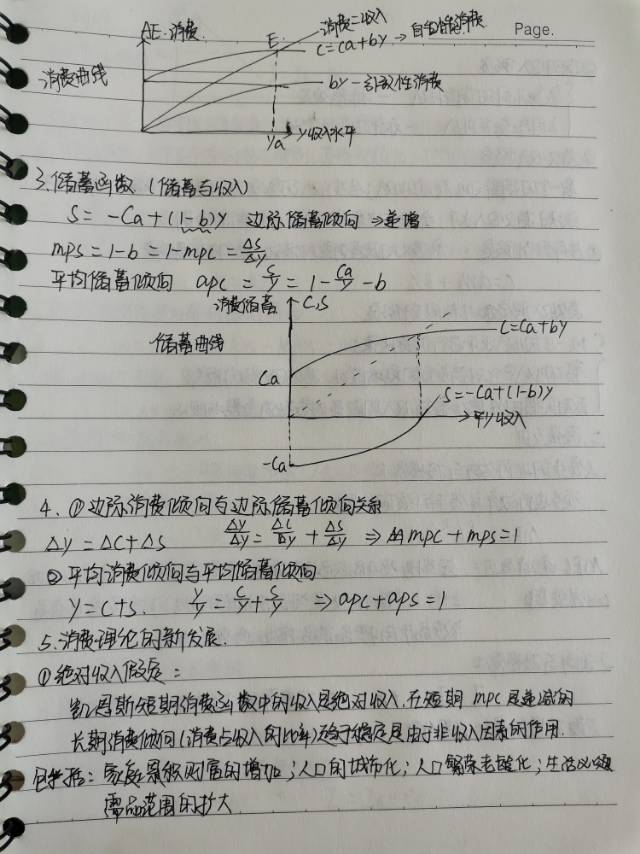 Page.
AE.消费.
E.
消费=收入
C=Ca+by → 自发性消费
消费曲线
by-引致性消费
Ya
y收入水平
3.储蓄函数(储蓄与收入)
S = -Ca+(1-b)y 边际储蓄倾向 ⇒递增
mps=1-b=1-mpc=ΔS/Δy
平均储蓄倾向 apc = S/y = 1-Ca/y-b
消费储蓄 C,S
储蓄曲线
C=Ca+by
Ca
S=-Ca+(1-b)y
y收入
-Ca
4. ①边际消费倾向与边际储蓄倾向关系
Δy=ΔC+ΔS Δy/Δy=ΔC/Δy+ΔS/Δy ⇒ mpc+mps=1
②平均消费倾向与平均储蓄倾向
y=c+s. y/y=c/y+s/y ⇒apc+aps=1
5.消费理论的新发展.
①绝对收入假定:
凯恩斯短期消费函数中的收入是绝对收入.在短期mpc是递减的
长期消费倾向(消费占收入的比率)趋于稳定是由于非收入因素的作用.
包括:家庭累积财富的增加;人口的城市化;人口繁荣老龄化;生活必须
需品范围的扩大